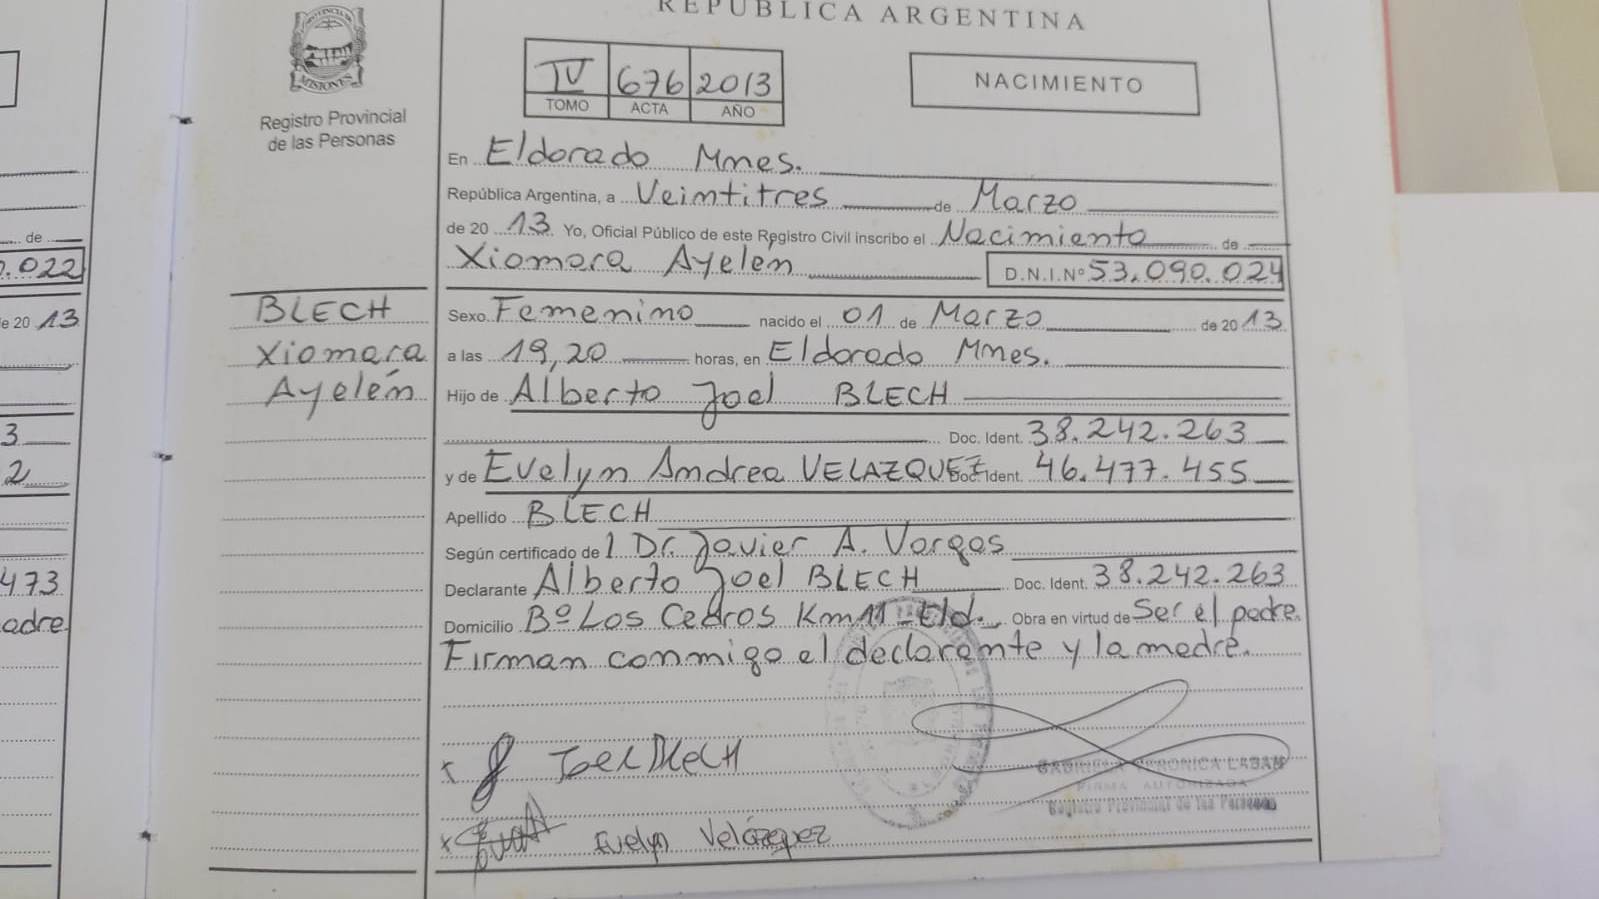 REPUBLICA ARGENTINA
PROVINCIA DE
MISIONES
Registro Provincial
de las Personas
IV 676 2013
TOMO ACTA AÑO
NACIMIENTO
En Eldorado Mnes.
República Argentina, a Veintitres de Marzo
de 20 13 Yo, Oficial Público de este Registro Civil inscribo el Nacimiento de
Xiomara Ayelén D.N.I.Nº 53.090.024
Sexo Femenino nacido el 01 de Marzo de 20 13
a las 19,20 horas, en Eldorado Mnes.
Hijo de Alberto Joel BLECH
Doc. Ident. 38.242.263
y de Evelyn Andrea VELAZQUEZ Doc. Ident. 46.477.455
Apellido BLECH
Según certificado de l Dr. Javier A. Vargas
Declarante Alberto Joel BLECH Doc. Ident. 38.242.263
Domicilio Bº Los Cedros Km 11 - Eld. Obra en virtud de Ser el padre.
Firman conmigo el declarante y la madre.
BLECH
Xiomara
Ayelén
x JOEL BLECH
x Evelyn Velázquez
GABRIELA VERONICA LABAN
FIRMA AUTORIZADA
Registro Provincial de las Personas
de
0.022
de 20 13
3
2
473
adre